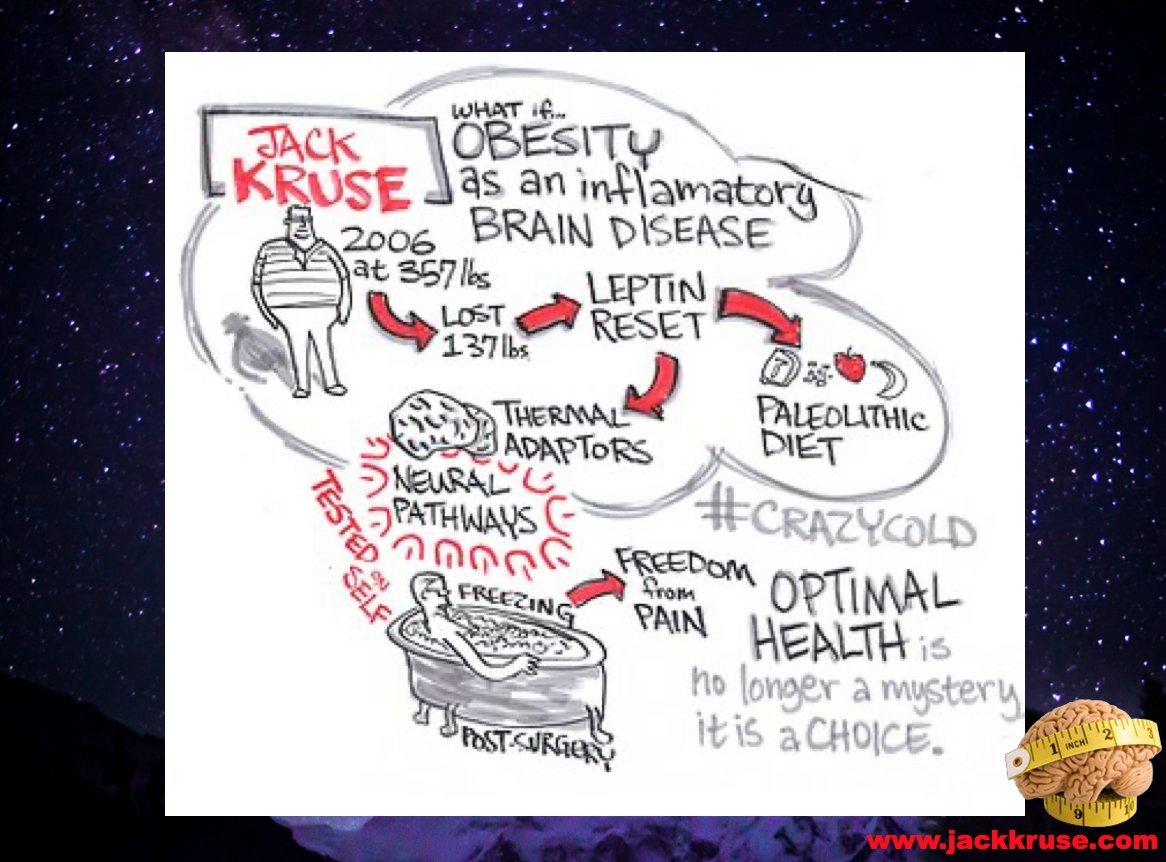 JACK
KRUSE
WHAT if...
OBESITY
as an inflamatory
BRAIN DISEASE
2006
at 357 lbs
LOST
137 lbs
LEPTIN
RESET
PALEOLITHIC
DIET
THERMAL
ADAPTORS
NEURAL
PATHWAYS
TESTED
on
SELF
#CRAZYCOLD
FREEZING
POST-SURGERY
FREEDOM
from
PAIN
OPTIMAL
HEALTH is
no longer a mystery
it is a CHOICE.
1 INCH 2 3
9 10
www.jackkruse.com